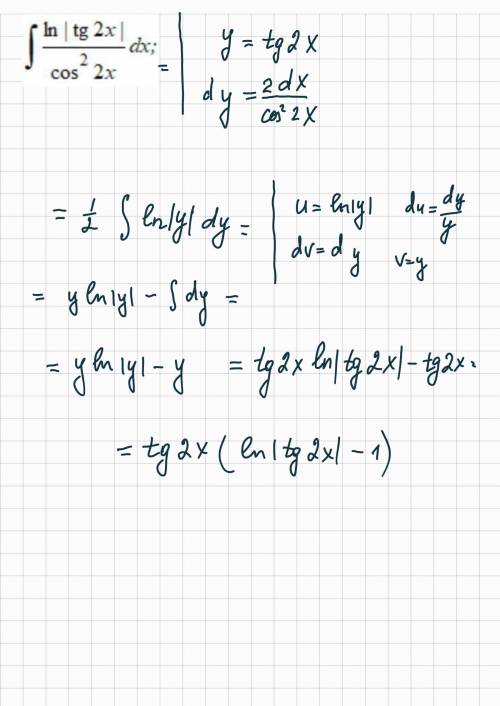 ∫ ln | tg 2x | / cos² 2x dx; = | y = tg 2x
dy = 2dx / cos² 2x
= 1/2 ∫ ln|y| dy = | u = ln|y| du = dy/y
dv = dy v=y
= y ln|y| - ∫ dy =
= y ln |y| - y = tg 2x ln|tg 2x| - tg 2x =
= tg 2x ( ln |tg 2x| - 1)